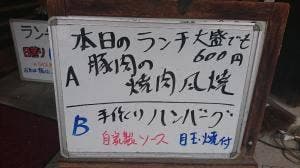 ランチ
本日のランチ 大盛でも
600円
A 豚肉の
焼肉風焼
B 手作りハンバーグ
自家製ソース 目玉焼付